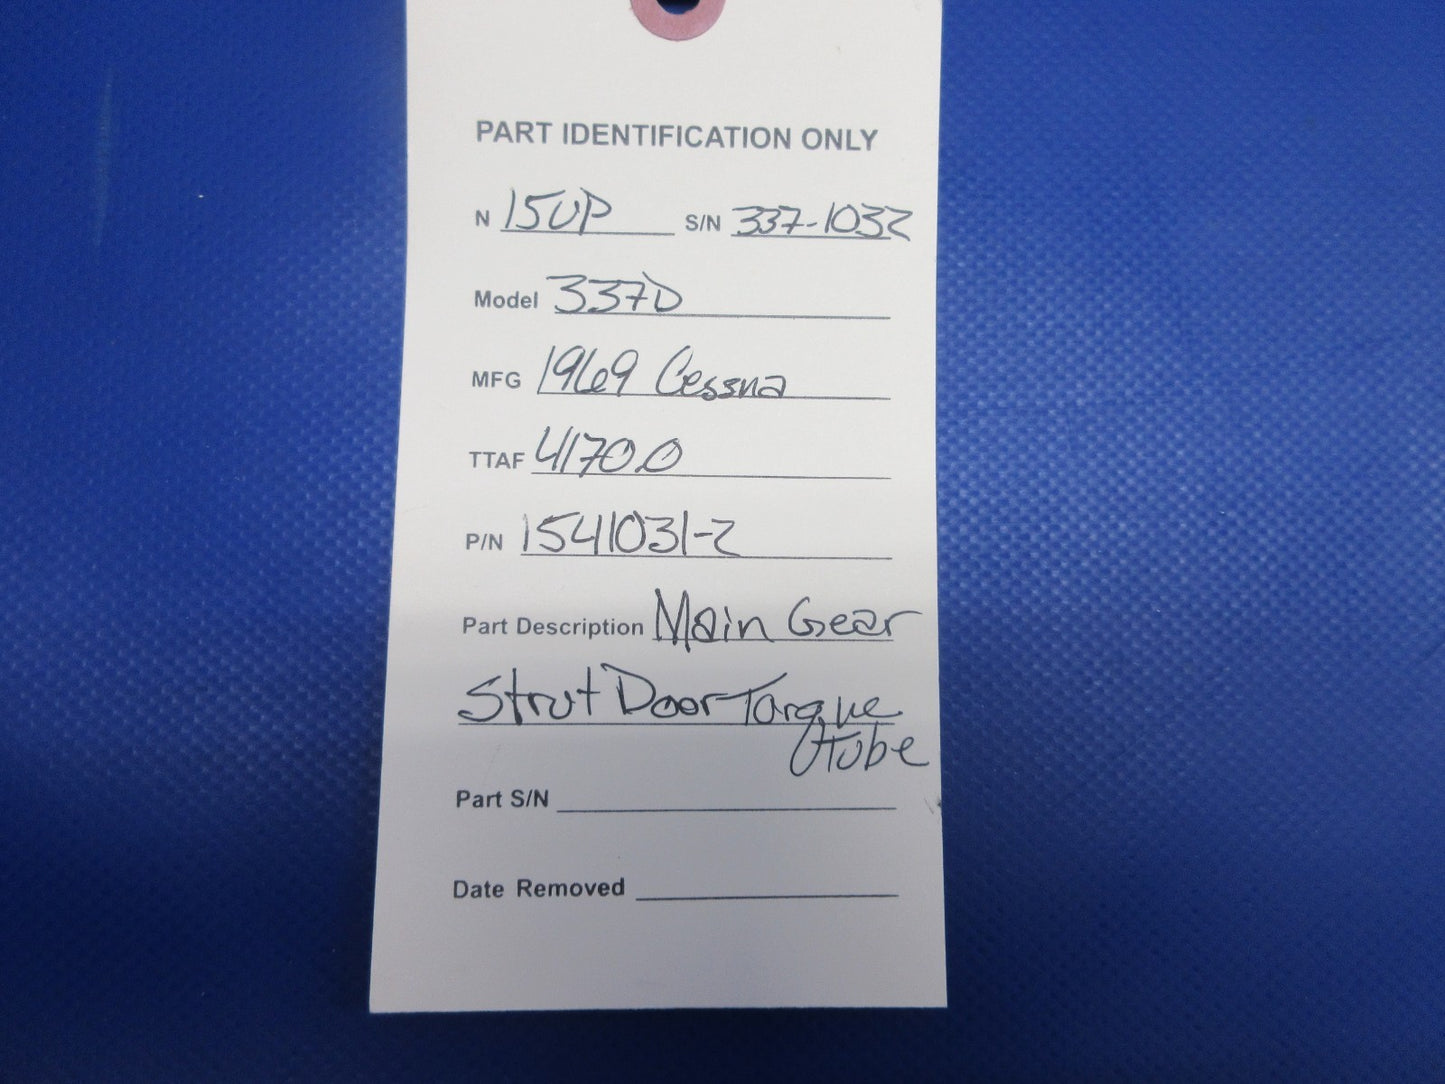 PART IDENTIFICATION ONLY
N 15UP S/N 337-1032
Model 337D
MFG 1969 Cessna
TTAF 4170.0
P/N 1541031-2
Part Description Main Gear
Strut Door Torque
tube
Part S/N
Date Removed